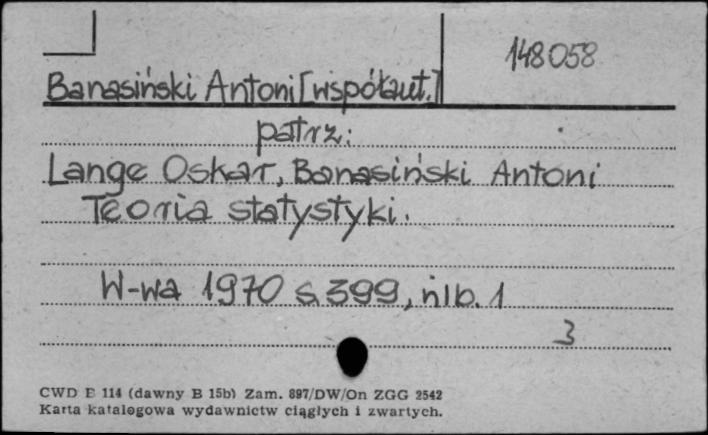 148058
Banasiński Antoni [współaut.]
patrz:
Lange Oskar, Banasiński Antoni
Teoria statystyki.
W-wa 1970 s. 399, nlb. 1
3
CWD E 114 (dawny B 15b) Zam. 897/DW/On ZGG 2542
Karta katalogowa wydawnictw ciągłych i zwartych.